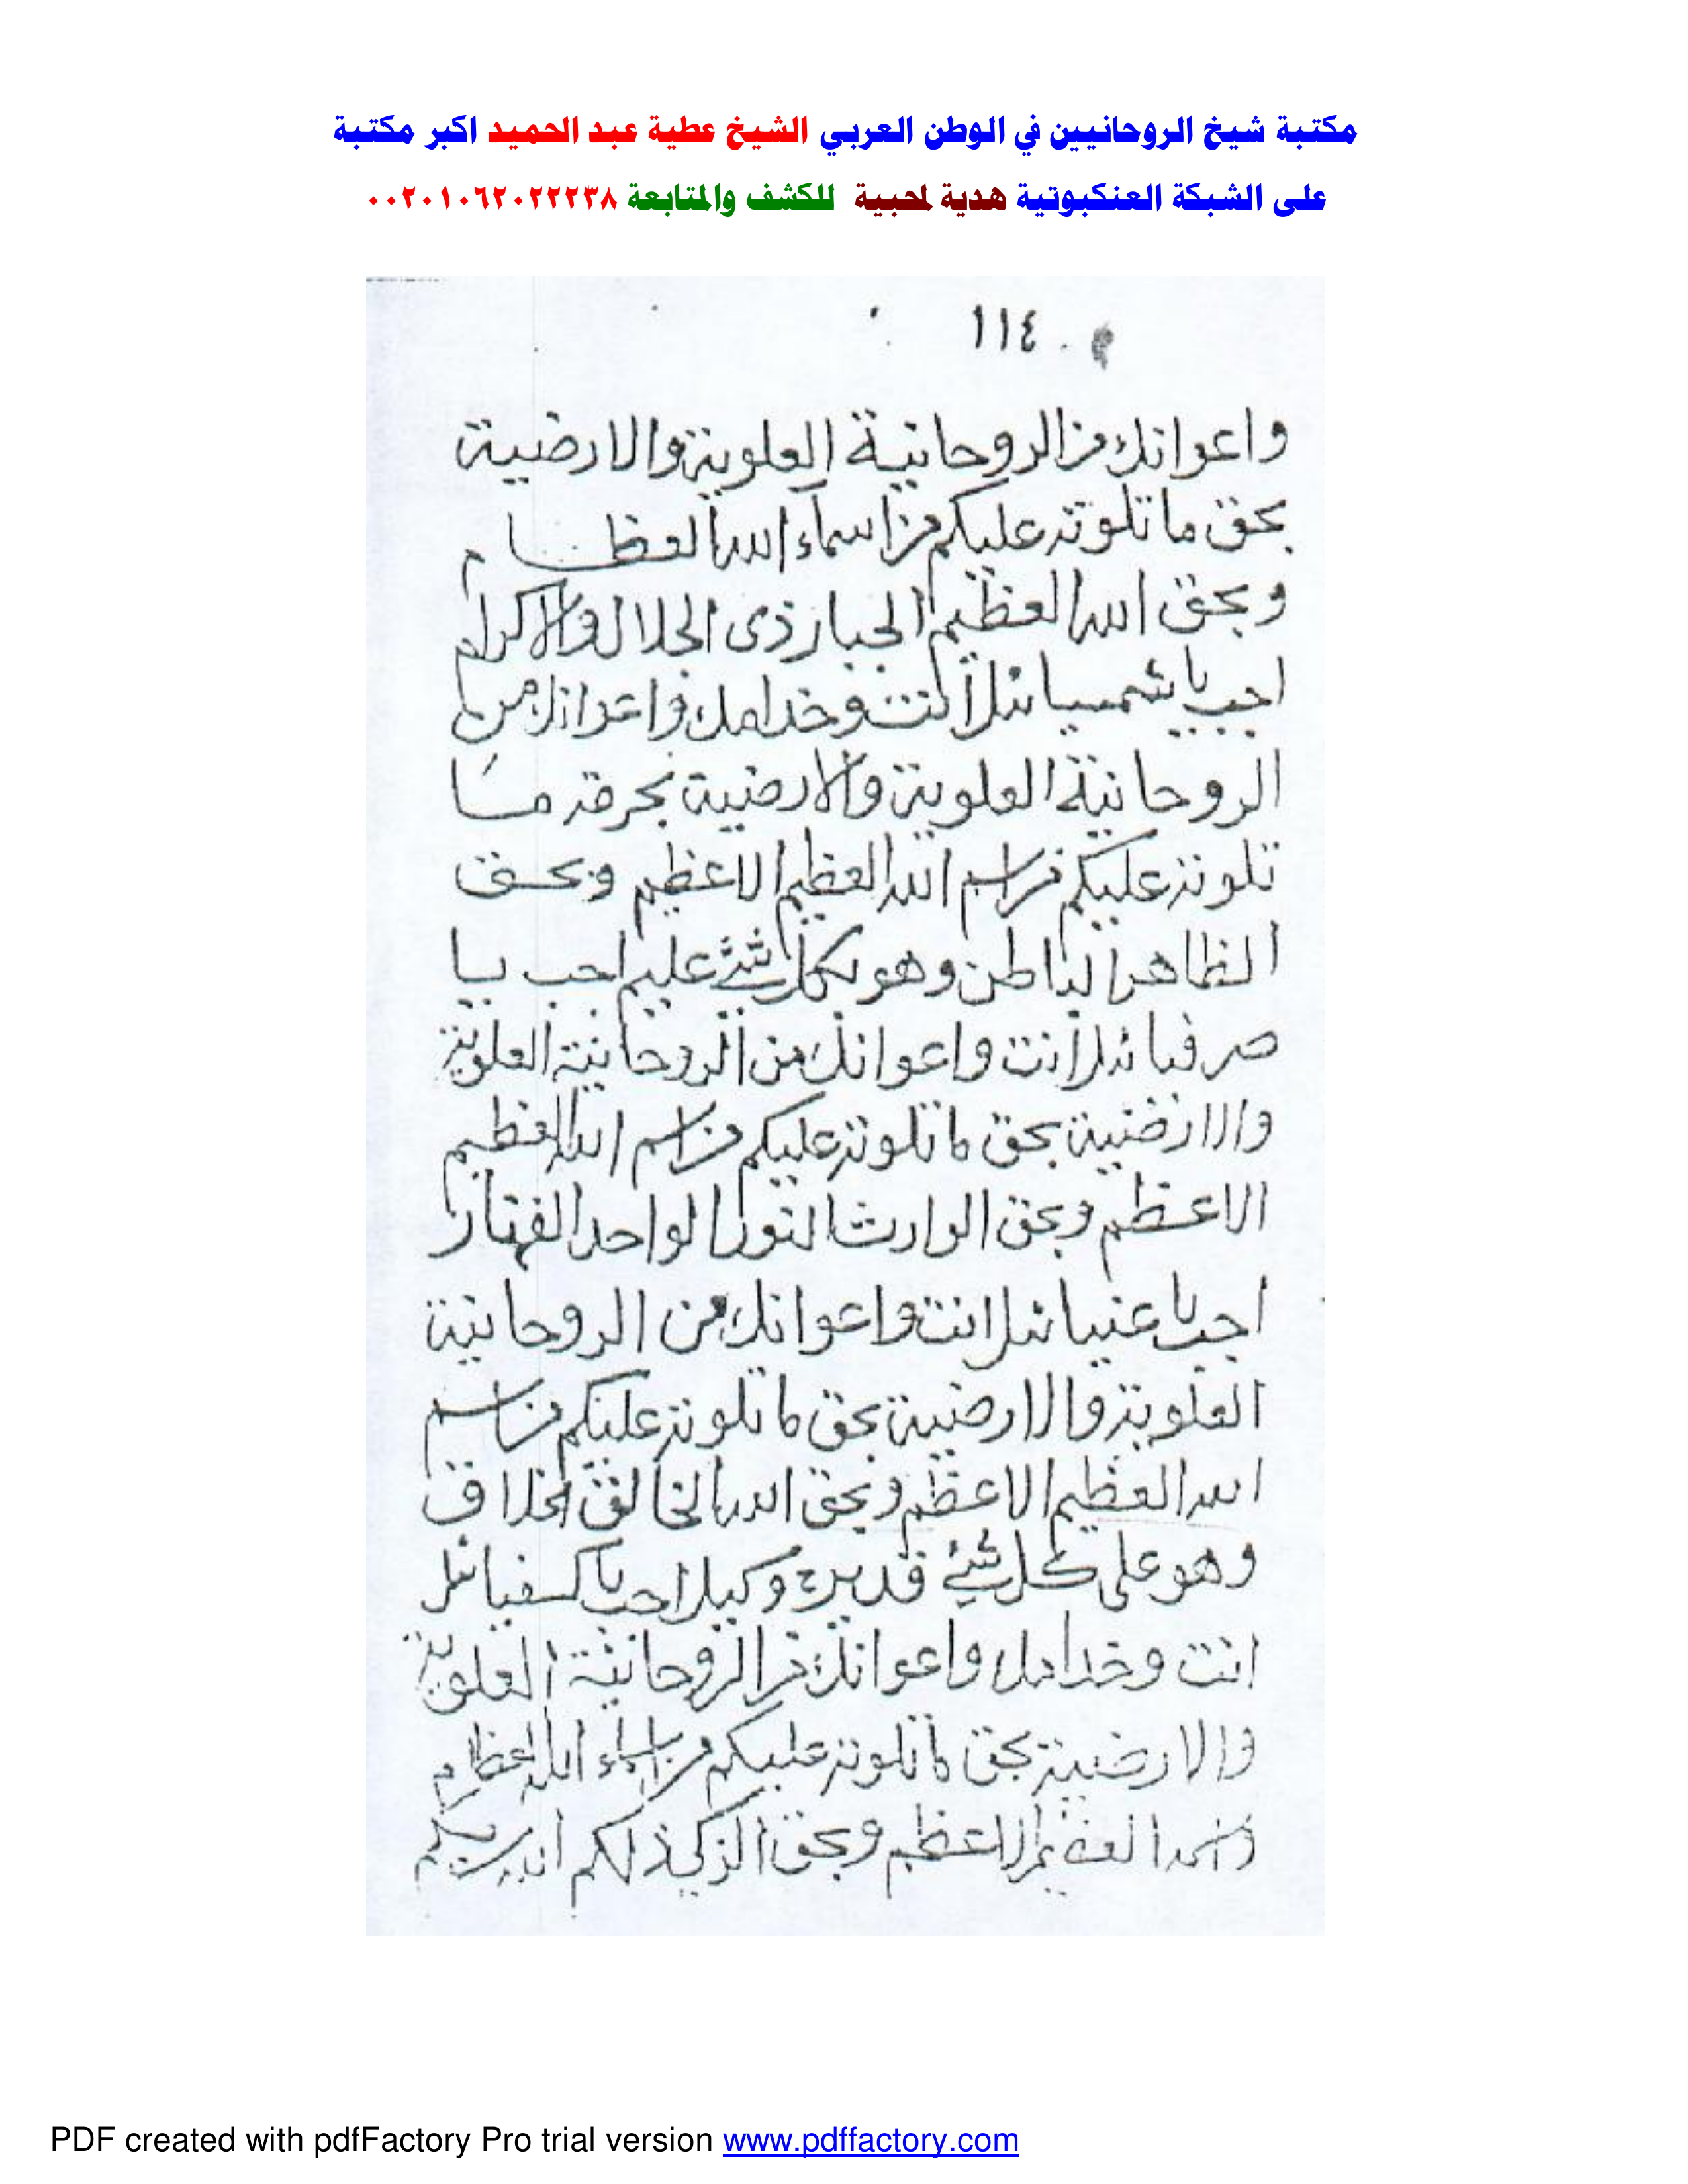 مكتبة شيخ الروحانيين في الوطن العربي الشيخ عطية عبد الحميد اكبر مكتبة
على الشبكة العنكبوتية هدية لمحبية للكشف والمتابعة ٠٠٢٠١٠٦٢٠٢٢٢٣٨
١١٤
واعوانك من الروحانية العلوية والارضية
بحق ما تلوته عليكم من اسماء الله العظام
وبحق الله العظيم الجبار ذى الجلال والاكرام
اجب يا شمسيائل انت وخدامك واعوانك من
الروحانية العلوية والارضية بحرمة ما
تلوته عليكم من اسم الله العظيم الاعظم وبحق
الظاهر الباطن وهو بكل شئ عليم اجب يا
صرفيائل انت واعوانك من الروحانية العلوية
والارضية بحق ما تلوته عليكم من اسم الله العظيم
الاعظم وبحق الوارث النور الواحد القهار
اجب يا عنيائل انت واعوانك من الروحانية
العلوية والارضية بحق ما تلوته عليكم من اسم
الله العظيم الاعظم وبحق الله الخالق الخلاق
وهو على كل شئ قدير وكيل اجب يا كسفيائل
انت وخدامك واعوانك من الروحانية العلوية
والارضية بحق ما تلوته عليكم من اسماء الله العظام
العظيم الاعظم وبحق الذى ذلكم الله ربكم
PDF created with pdfFactory Pro trial version www.pdffactory.com